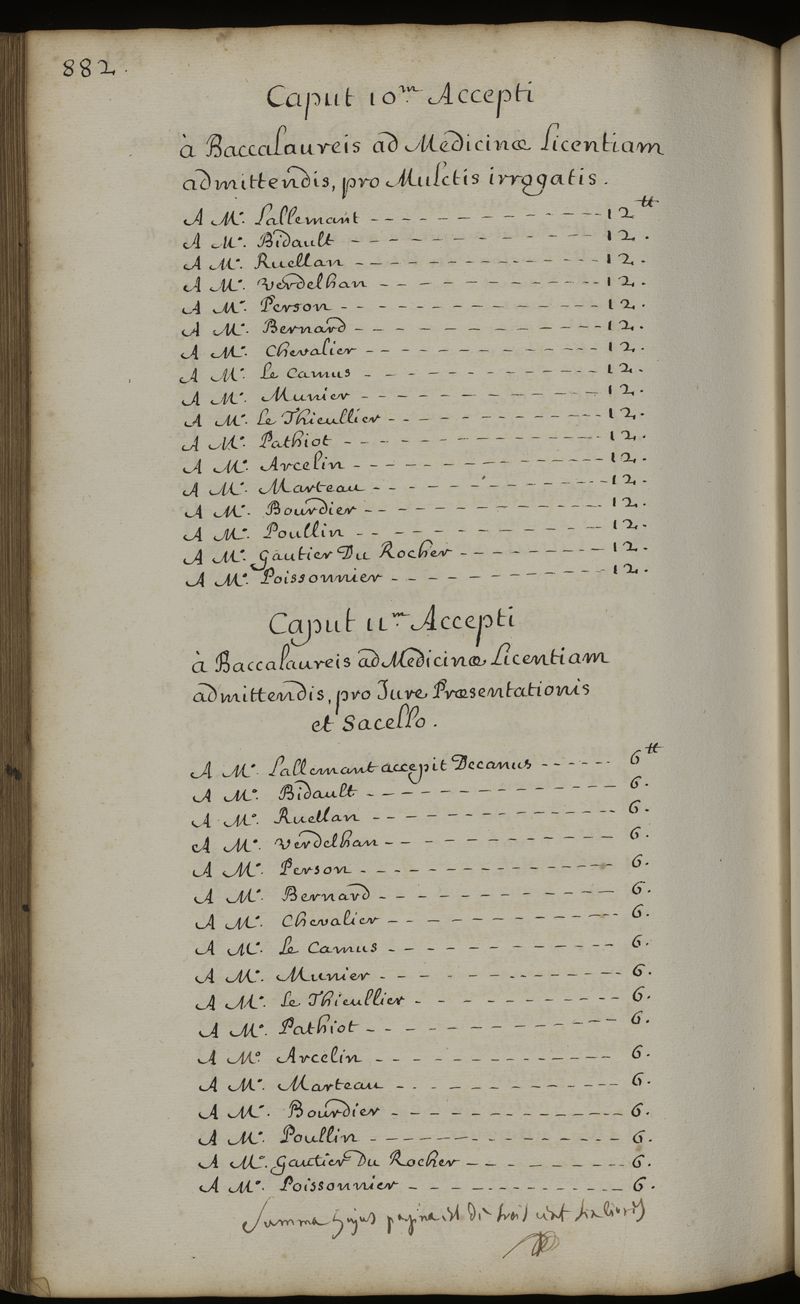 882.
Caput 10m. Accepti
à Baccalaureis ad Medicinæ Licentiam
admittendis, pro Mulctis irrogatis.
A Mr. Lallemant 12tt
A Mr. Bidault 12.
A Mr. Ruellan 12.
A Mr. Verdelhan 12.
A Mr. Person 12.
A Mr. Bernard 12.
A Mr. Chevalier 12.
A Mr. Le Camus 12.
A Mr. Munier 12.
A Mr. Le Thieullier 12.
A Mr. Pathiot 12.
A Mr. Arcelin 12.
A Mr. Marteau 12.
A Mr. Bourdier 12.
A Mr. Poullin 12.
A Mr. Gautier Du Rocher 12.
A Mr. Poissonnier 12.
Caput 11m. Accepti
à Baccalaureis ad Medicinæ Licentiam
admittendis, pro Jure Præsentationis
et Sacello.
A Mr. Lallemant accepit Decanus 6tt
A Mr. Bidault 6.
A Mr. Ruellan 6.
A Mr. Verdelhan 6.
A Mr. Person 6.
A Mr. Bernard 6.
A Mr. Chevalier 6.
A Mr. Le Camus 6.
A Mr. Munier 6.
A Mr. Le Thieullier 6.
A Mr. Pathiot 6.
A Mr. Arcelin 6.
A Mr. Marteau 6.
A Mr. Bourdier 6.
A Mr. Poullin 6.
A Mr. Gautier Du Rocher 6.
A Mr. Poissonnier 6.
Summa hujus pagina est de trois cent six livres